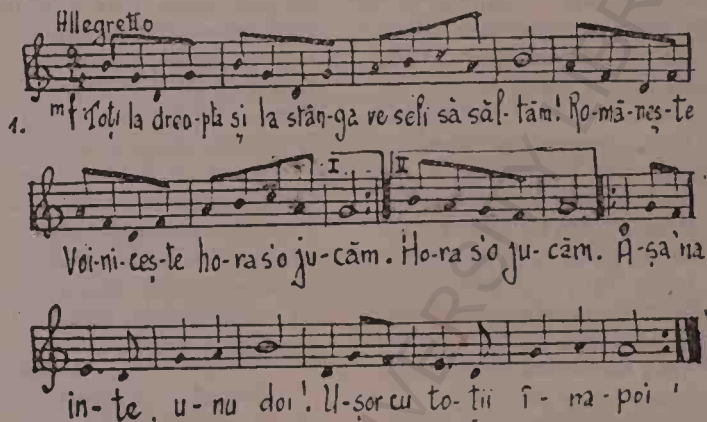 Allegretto
1. mf Toți la drea-pta și la stân-ga ve seli să săl-tăm! Ro-mă-neș-te
I II
Voi-ni-ceș-te ho-ra s'o ju-căm. Ho-ra s'o ju-căm. A-șa 'na
in-te, u-nu doi! U-șor cu to-ții î-na-poi!
VERSITY LIBR